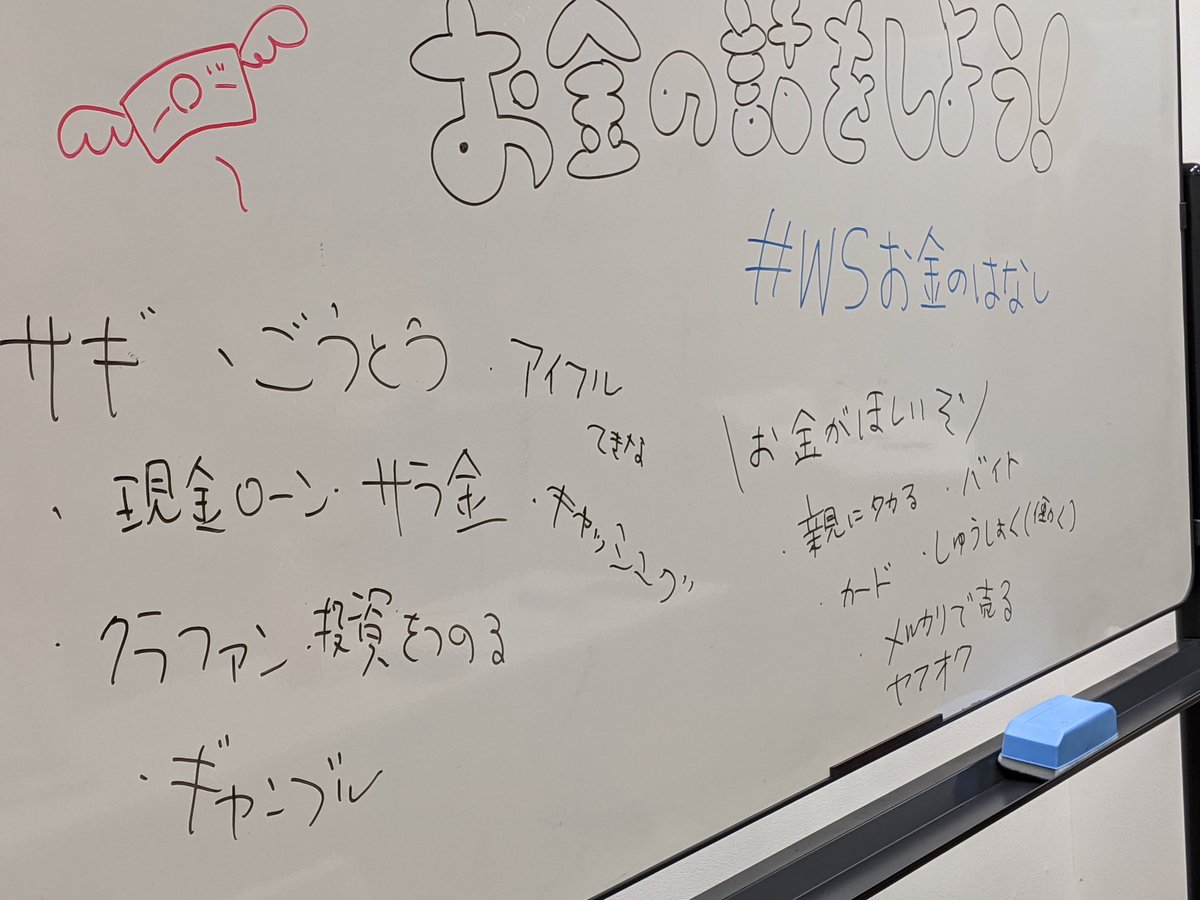 お金の話をしよう!
#WSお金のはなし
サギ 、ごうとう ・アイフル
できな
、現金ローン・サラ金 ・キャッシング
・クラファン 投資をつのる
・ギャンブル
\お金がほしいぞ/
・親にタカる ・バイト
・カード ・しゅうしょく(働く)
・メルカリで売る
ヤフオク